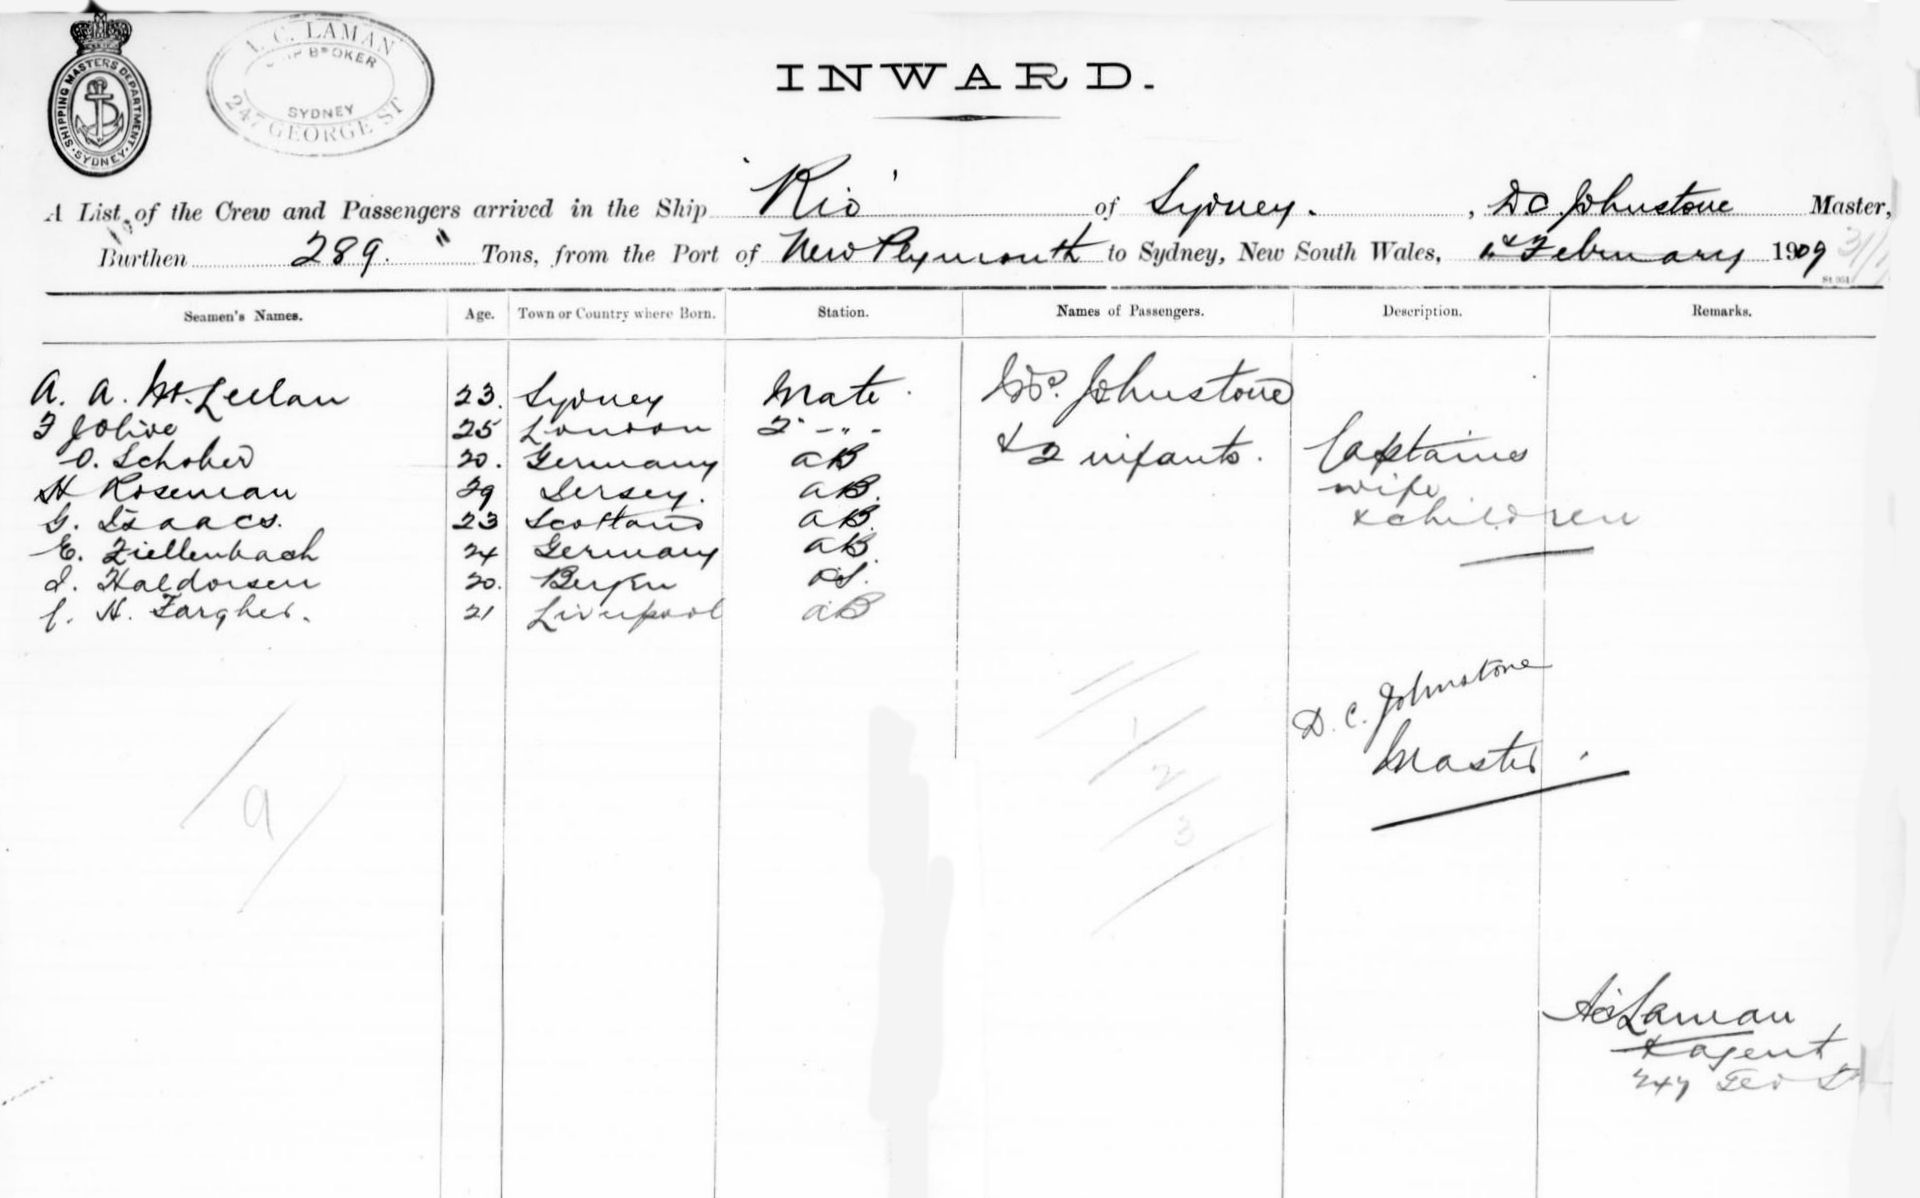 SHIPPING MASTERS DEPARTMENT. SYDNEY.
A. C. LAMAN
SHIP BROKER
SYDNEY
247 GEORGE ST
INWARD.
A List of the Crew and Passengers arrived in the Ship "Rio" of Sydney. , D C Johnstone Master,
Burthen 289. Tons, from the Port of New Plymouth to Sydney, New South Wales, February 1909
Seamen's Names. Age. Town or Country where Born. Station. Names of Passengers. Description. Remarks.
A. A. McLellan 23. Sydney Mate. Mrs. Johnstone
F Jolive 25 London 2 - " -
O. Schober 20. Germany AB & 2 infants. Captains
H Roseman 29 Jersey. AB. wife
G. Isaacs. 23 Scotland AB. & children
E. Ziellenbach 24 Germany AB.
Haldorsen 20. Bergen OS.
C. H. Fargher. 21 Liverpool AB
D. C. Johnstone
Master.
9
1
2
3
A C Laman
agent
247 Geo St